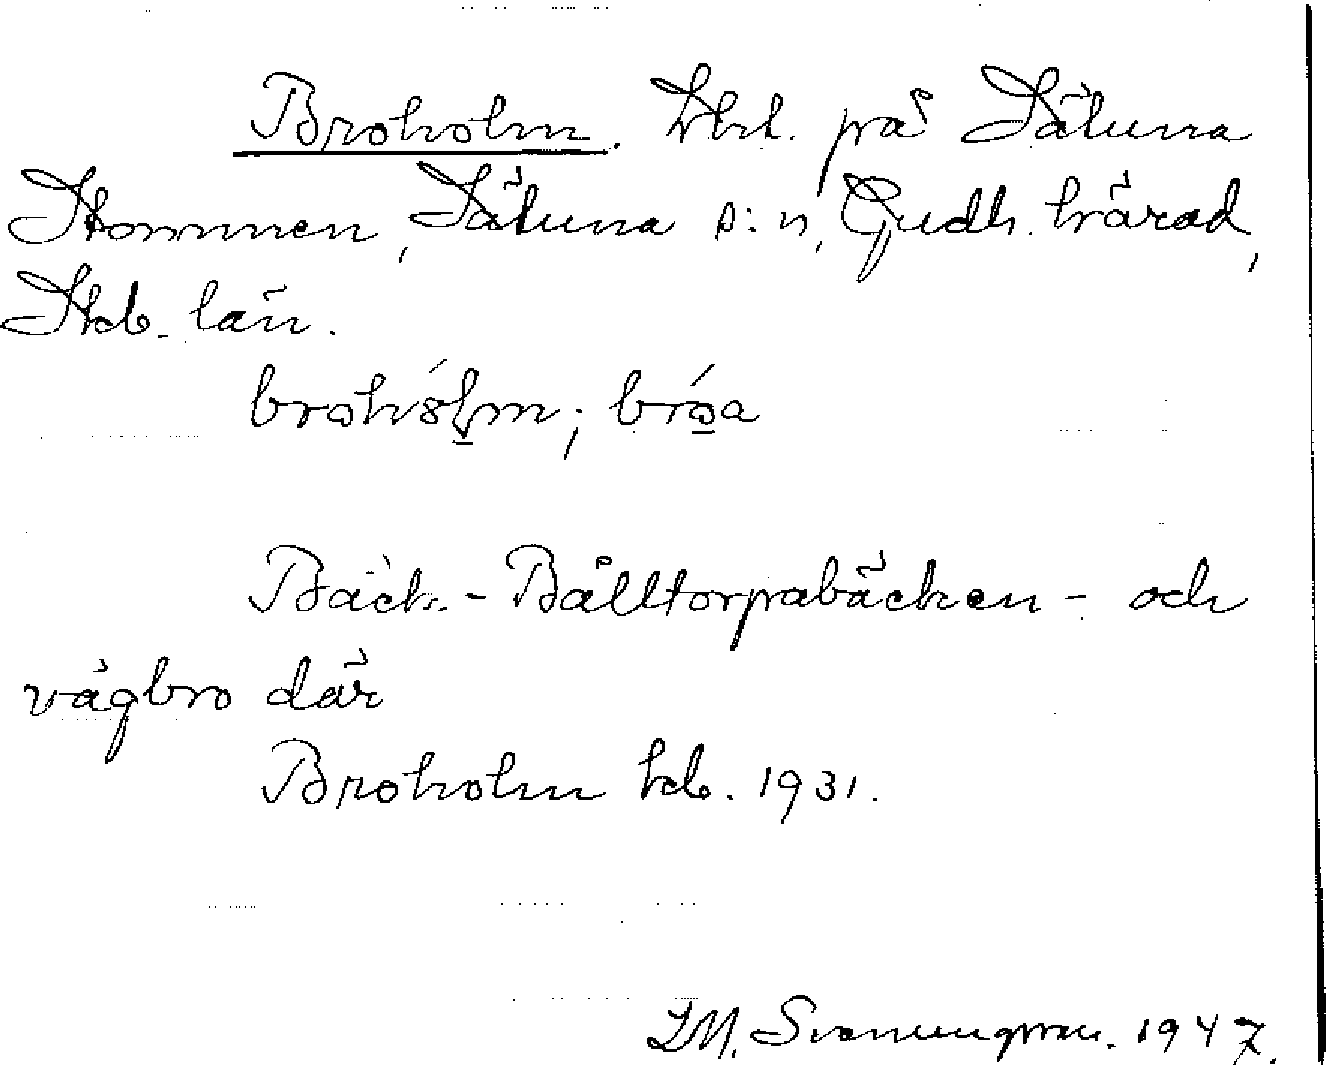 Broholm. Lht. på Sätuna
Stommen, Sätuna s:n, Gudh. härad,
Skb. län.
brohólm; bróa
Bäck - Bälltorpabäcken - och
vägbro där
Broholm kb. 1931.
Svanungsson. 1947.